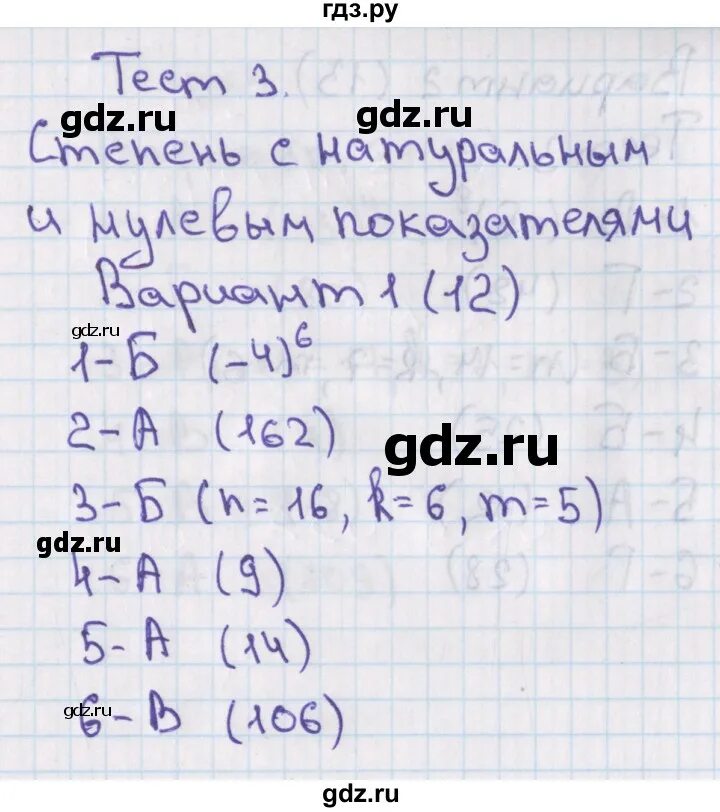 гдз.ру
Тест 3.
gdz.ru gdz.ru
Степень с натуральным
и нулевым показателями
Вариант 1 (12)
gdz.ru
1-Б (-4)⁶
2-А (162)
gdz.ru
3-Б (n=16, k=6, m=5)
gdz.ru
4-А (9)
5-А (14)
gdz.ru
6-В (106)
gdz.ru